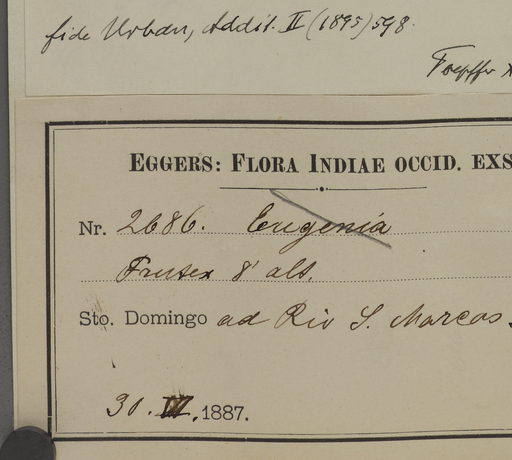 fide Urban, Addit. II (1895) 598.
Toepffer
EGGERS: FLORA INDIAE OCCID. EXS
Nr. 2686. Eugenia
Frutex 8' alt.
Sto. Domingo ad Rio S. Marcos
30. , 1887.